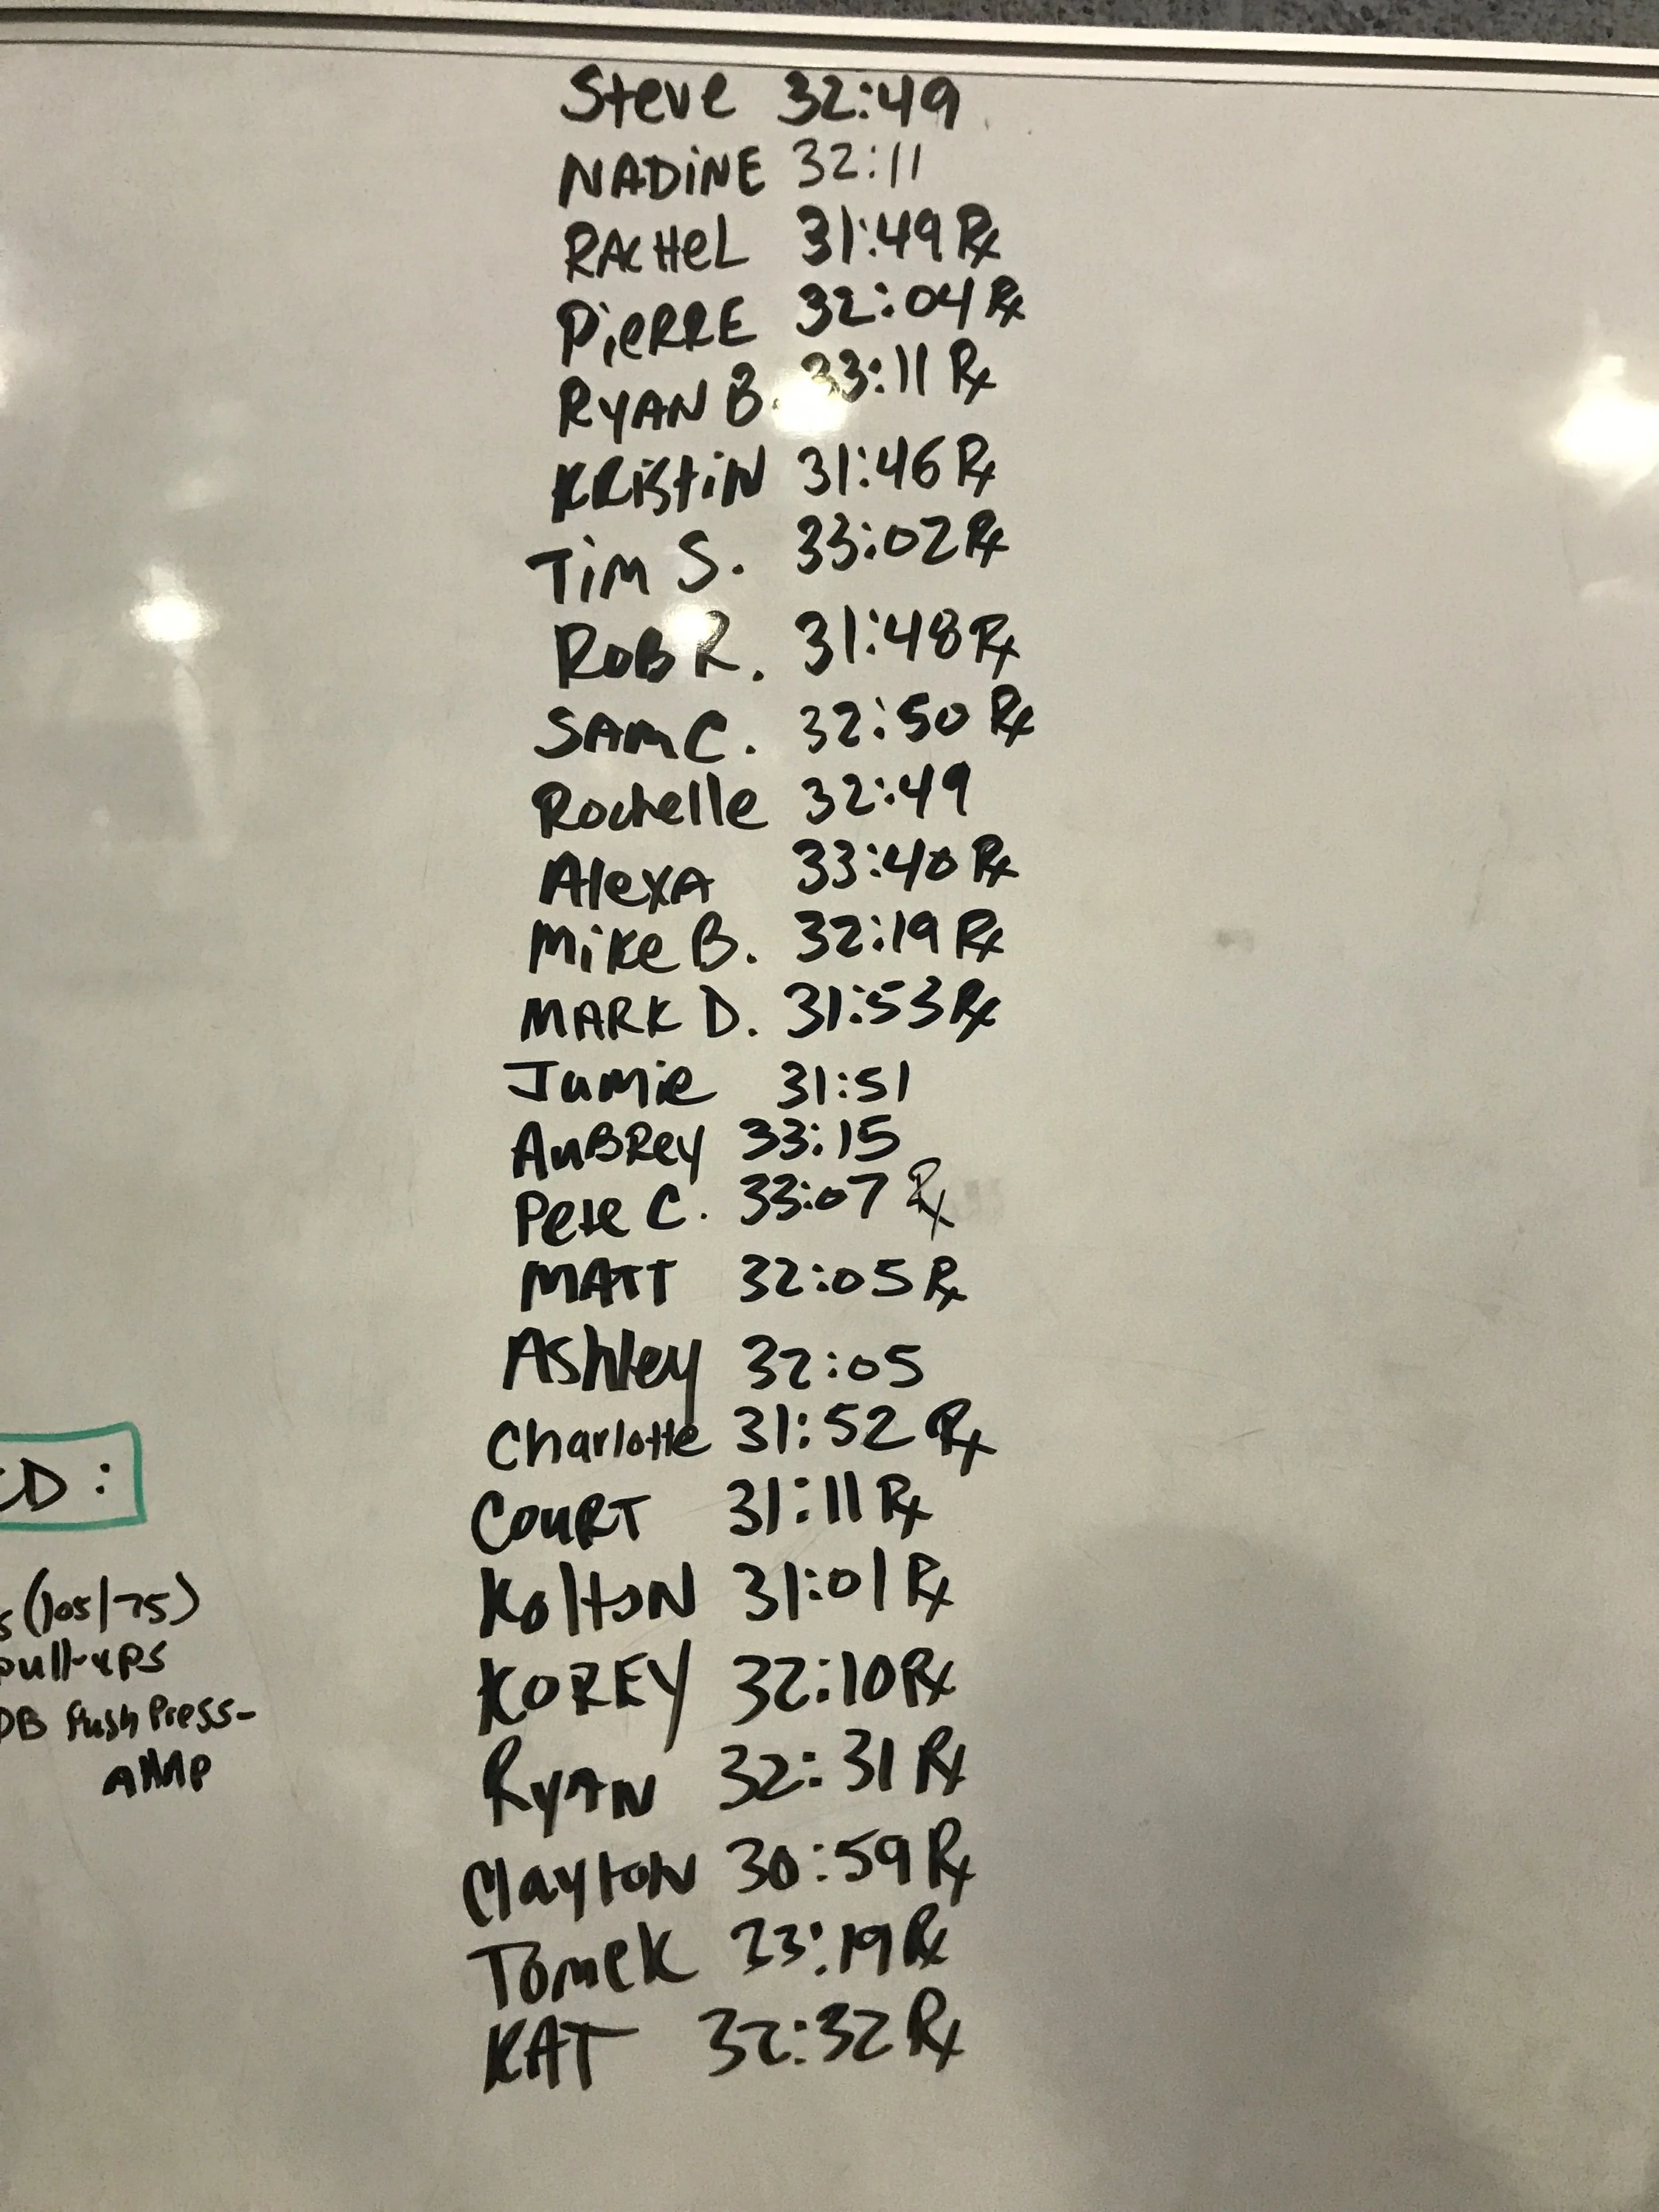 Steve 32:49
NADiNE 32:11
RACHeL 31:49 Rx
PieRRE 32:04 Rx
RYAN B. 33:11 Rx
KRistiN 31:46 Rx
Tim S. 33:02 Rx
RoB R. 31:48 Rx
SAM C. 32:50 Rx
Rochelle 32:49
AlexA 33:40 Rx
Mike B. 32:19 Rx
MARK D. 31:53 Rx
Jamie 31:51
AuBRey 33:15
Pete C. 33:07 Rx
MATT 32:05 Rx
Ashley 32:05
Charlotte 31:52 Rx
CouRT 31:11 Rx
KoltoN 31:01 Rx
KOREY 32:10 Rx
RYAN 32:31 Rx
Clayton 30:59 Rx
Tomek 33:19 Rx
KAT 32:32 Rx
CD:
s (105/75)
pull-ups
DB Push Press-